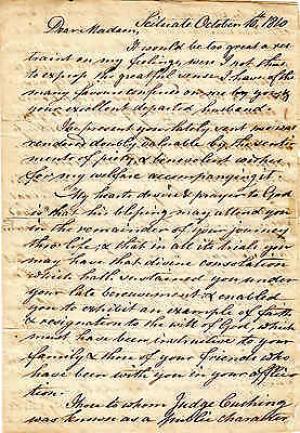 Scituate October 16th, 1810
Dear Madam,
It would be too great a res
traint on my feelings, were I not thus
to express the grateful sense I have of the
many favours conferred on me by you &
your excellent departed husband.
The present you lately sent me was
rendered doubly valuable by the senti
ments of piety & benevolent wishes
for my welfare accompanying it.
My hearts desire & prayer to God
is that his blessing may attend you
in the remainder of your journey
thro life, & that in all its trials you
may have that divine consolation
which hath sustained you under
your late bereavement & enabled
you to exhibit an example of faith
& resignation to the will of God, which
must have been instructive to your
family & those of your friends who
have been with you in your afflic
tion.
Those to whom Judge Cushing
was known as a public character